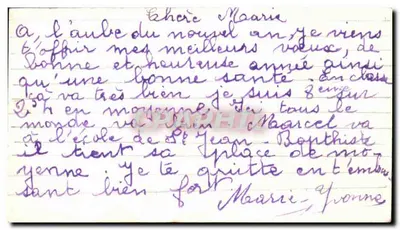 Chère Marie
A, l'aube du nouvel an, je viens
t'offrir mes meilleurs vœux, de
bonne et heureuse année ainsi
qu'une bonne santé. En classe
çà va très bien je suis 8ème sur
24 en moyenne. Ici tous le
monde va bien Marcel va
a l'école de St Jean-Bapthiste
il tient sa place de mo-
yenne. Je te quitte en t'embras-
sant bien fort
Marie-Yvonne